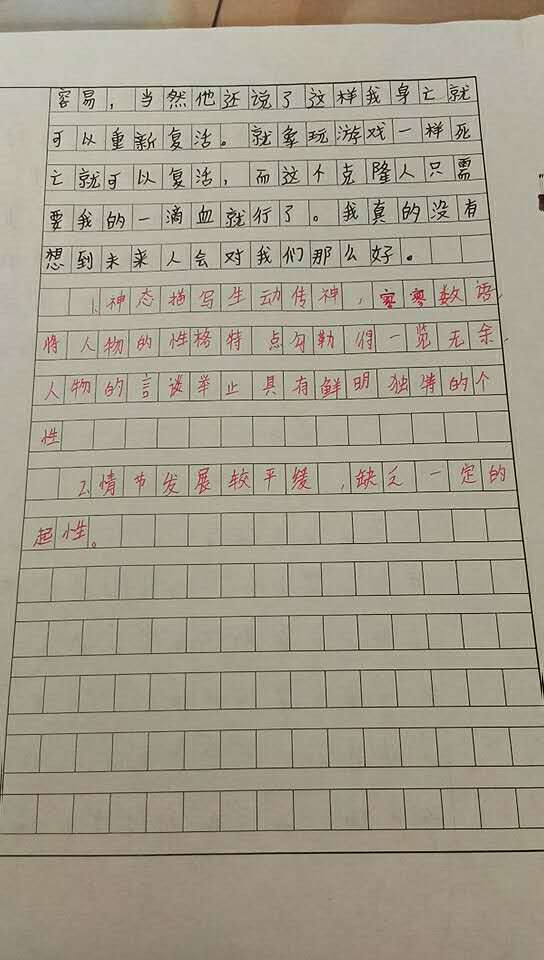 容易，当然他还说了这样我身亡就
可以重新复活。就象玩游戏一样死
亡就可以复活，而这个克隆人只需
要我的一滴血就行了。我真的没有
想到未来人会对我们那么好。
1.神态描写生动传神，寥寥数语，
将人物的性格特点勾勒得一览无余，
人物的言谈举止具有鲜明独特的个
性
2.情节发展较平缓，缺乏一定的
起性。